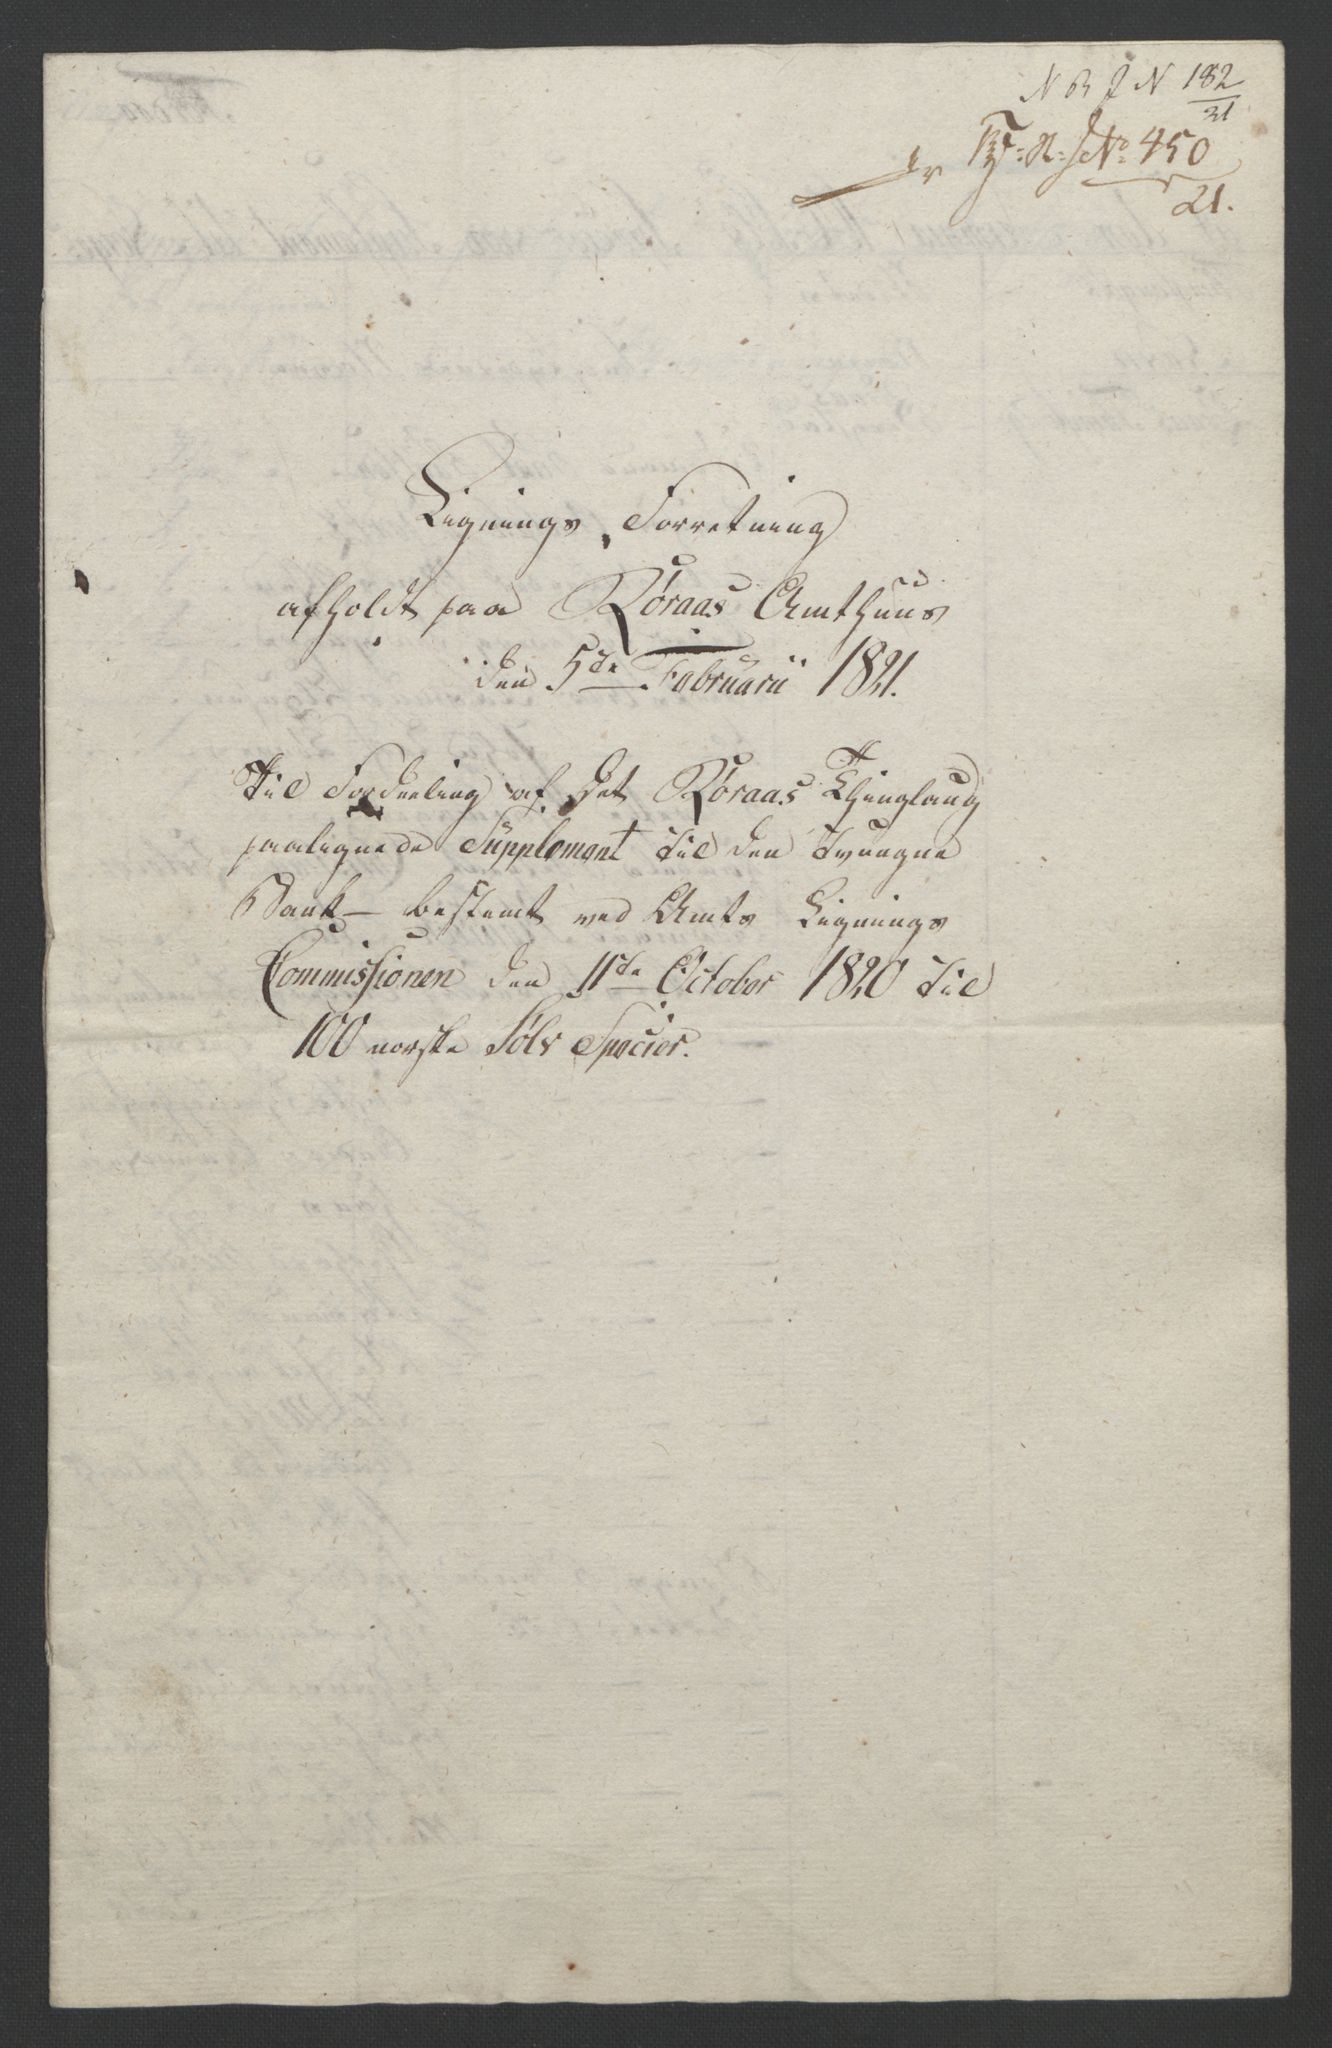 N B J N 182/21
No 450
21.
Lignings Forretning
afholdt paa Røraas Amthuus
den 5te Februarii 1821.
til Fordeeling af det Røraas Thinglaug
paalignede Supplement til den tvungne
Bank – bestemt ved Amts Lignings
Commissionen den 11te October 1820 til
100 norske Sølv Specier.